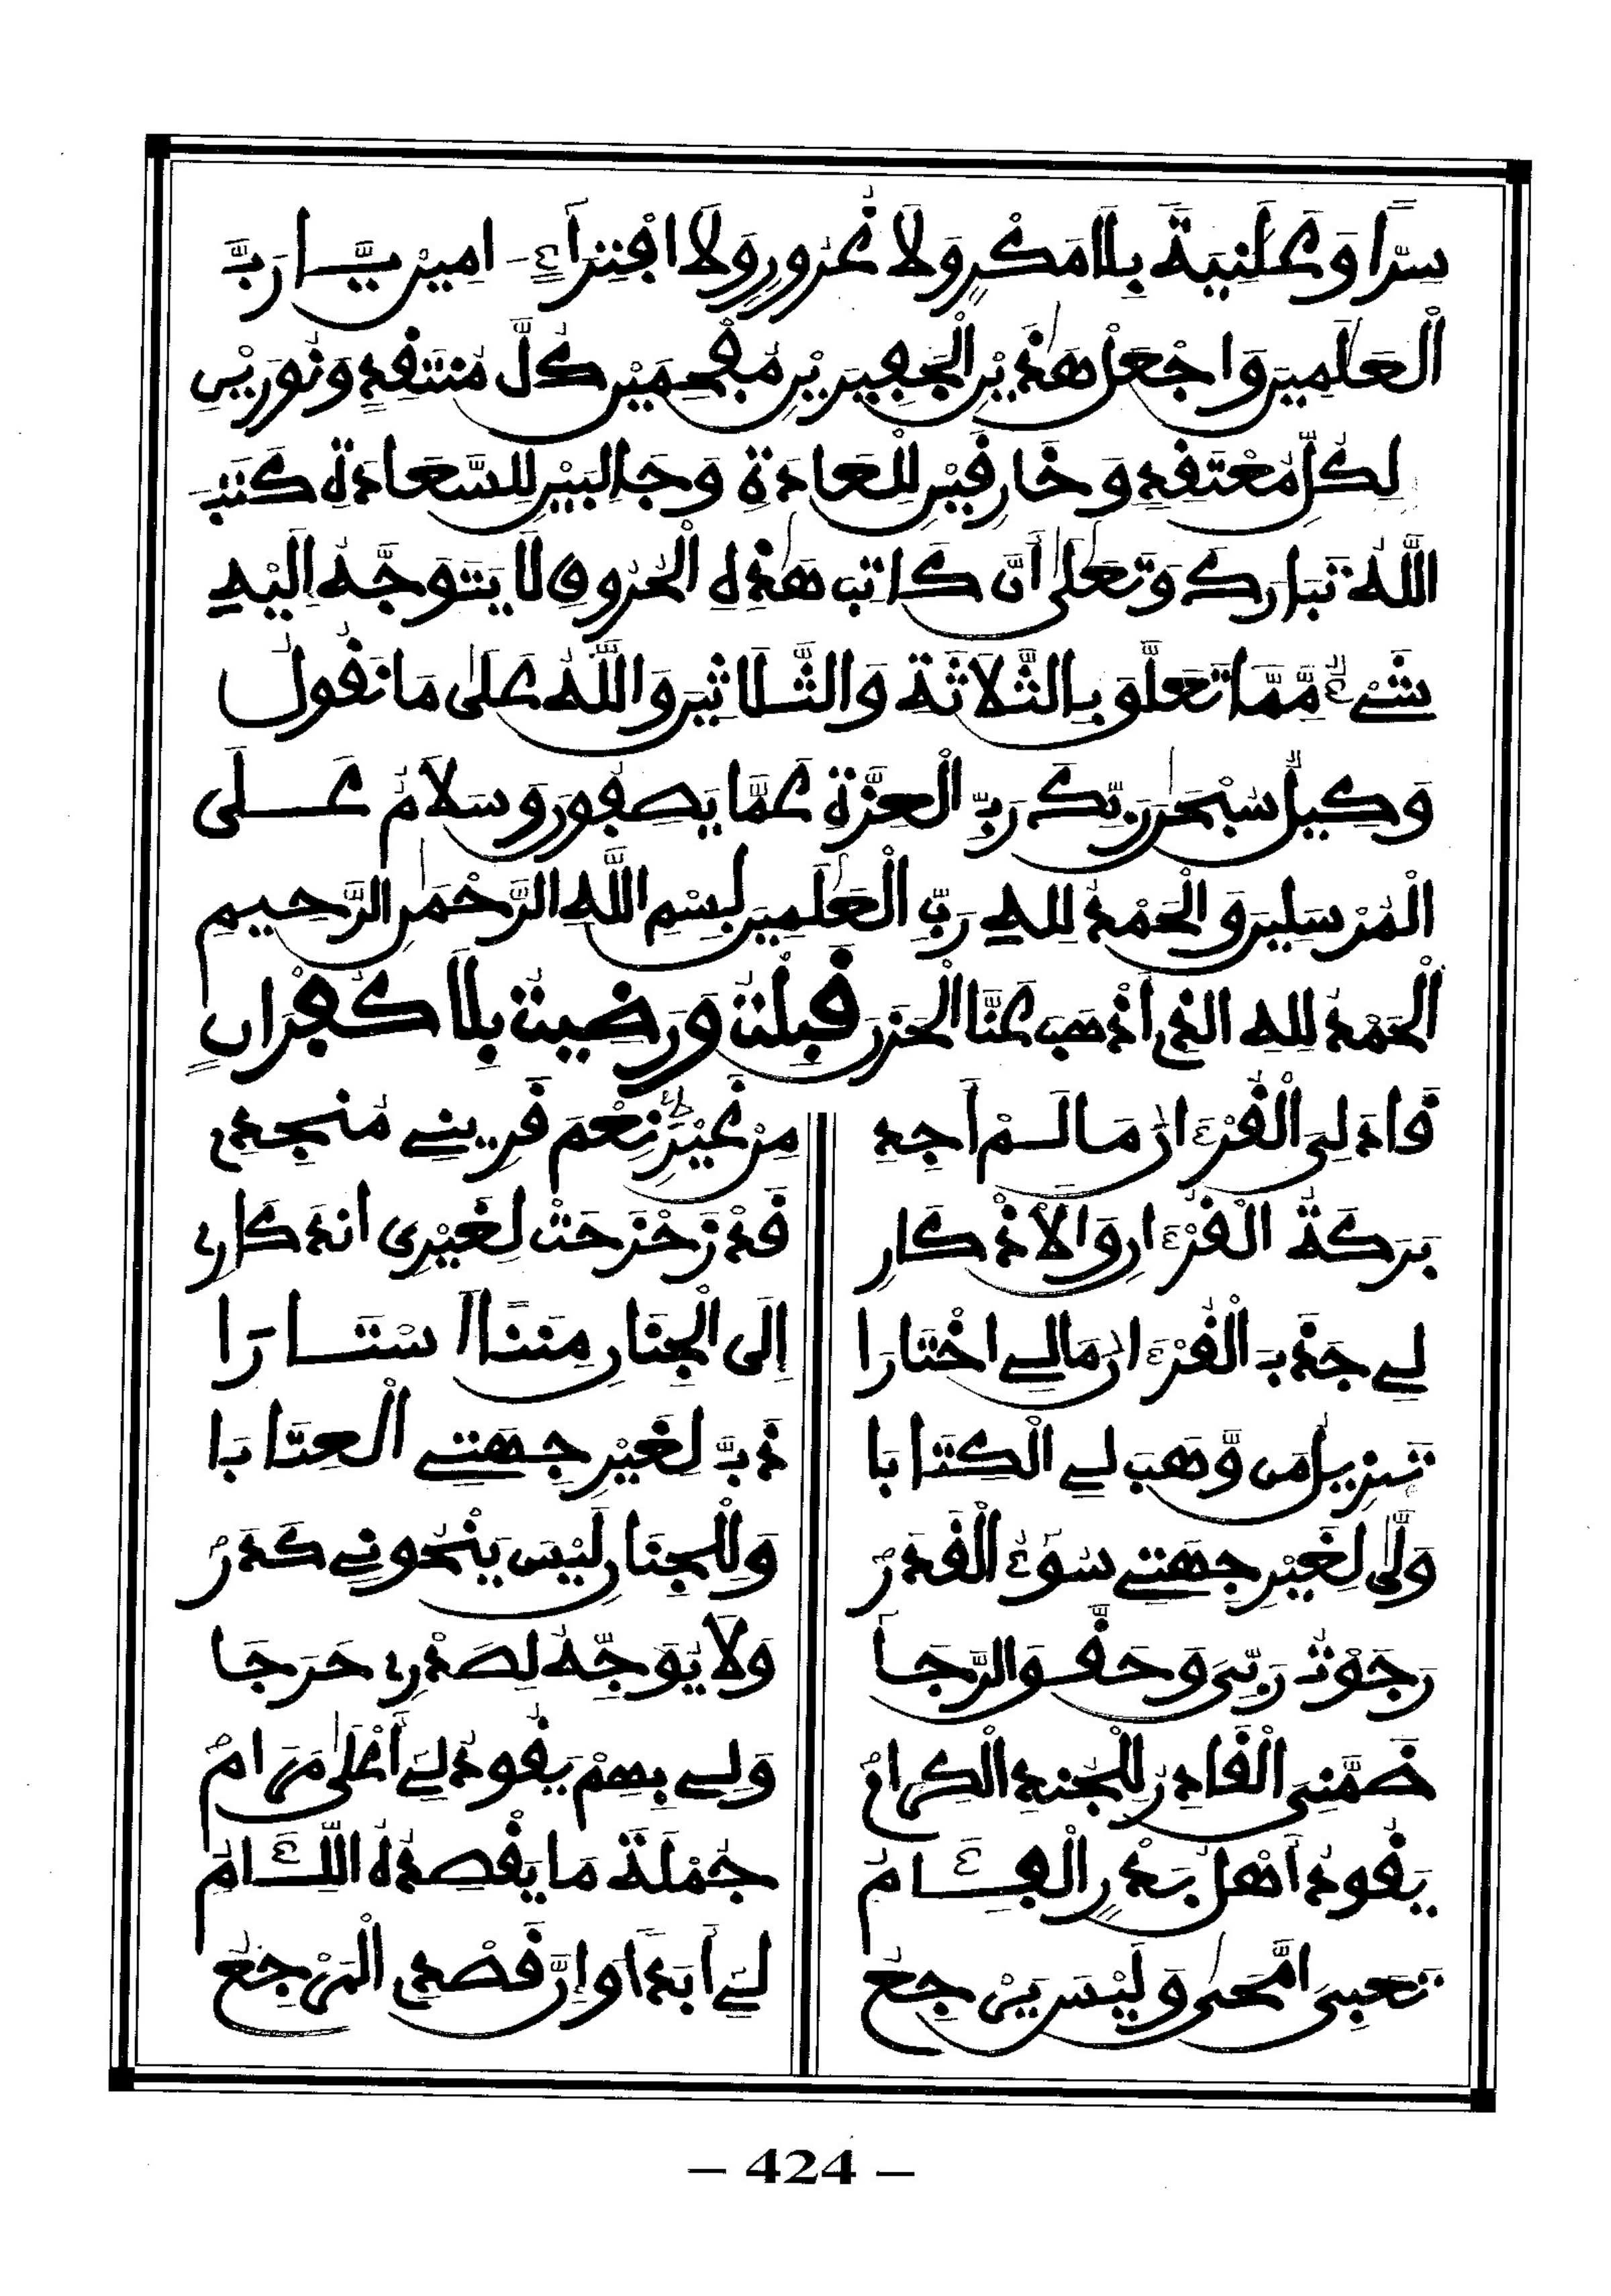 سِرًّا وَعَلَنِيَةً بِلَا مَكْرٍ وَلَا غُرُورٍ وَلَا افْتِرَاءٍ امِينَ يَا رَبَّ
الْعَلَمِينَ وَاجْعَلْ هَذَيْنِ الْجَفِيرَيْنِ مُفْحِمَيْنِ كُلَّ مُنتَقِدٍ وَنُورَيْنِ
لِكُلِّ مُعْتَقِدٍ وَخَارِقَيْنِ لِلْعَادَةِ وَجَالِبَيْنِ لِلسَّعَادَةِ كَتَبَ
اللَّهُ تَبَارَكَ وَتَعَلَى أَنَّ كَاتِبَ هَذِهِ الْحُرُوفِ لَا يَتَوَجَّهُ إِلَيْهِ
شَيْءٌ مِّمَّا تَعَلَّقَ بِالثَّلَاثَةِ وَالثَّلَاثِينَ وَاللَّهُ عَلَى مَا نَقُولُ
وَكِيلٌ سُبْحَنَ رَبِّكَ رَبِّ الْعِزَّةِ عَمَّا يَصِفُونَ وَسَلَامٌ عَلَى
الْمُرْسَلِينَ وَالْحَمْدُ لِلهِ رَبِّ الْعَلَمِينَ بِسْمِ اللَّهِ الرَّحْمَنِ الرَّحِيمِ
الْحَمْدُ لِلهِ الذِي أَذْهَبَ عَنَّا الْحَزَنَ قَبِلْتُ وَرَضِيتُ بِلَا كُفْرَانٍ
قَادَ لِيَ الْقُرْءَانُ مَا لَمْ أَجِدِ مِنْ غَيْرِهِ نِعْمَ قَرِينِي مُنجِدِي
بَرَكَةُ الْقُرْءَانِ وَالْأَذْكَارِ قَدْ زَحْزَحَتْ لِغَيْرِيَ انْدَكَارِي
لِي جَذَبَ الْقُرْءَانُ مَا لِي اخْتَارَا إِلَى الْجِنَانِ مِنَنًا أَسْتَارَا
تَنزِيلُ مَن وَّهَبَ لِي الْكِتَابَا ذَبَّ لِغَيْرِ جِهَتِي الْعِتَابَا
وَلَّى لِغَيْرِ جِهَتِي سُوءُ الْقَدَرْ وَلِلْجِنَانِ لَيْسَ يَنْحُونِي كَدَرْ
رَجَوْتُ رَبِّيَ وَحَقَّقَ الرَّجَا وَلَا يُوَجِّهُ لِصَدْرِي حَرَجَا
ضَمَّنِيَ الْقَادِرُ لِلْجُندِ الْكِرَامْ وَلِي بِهِمْ يَقُودُ لِي أَعْلَى مَرَامْ
يَقُودُ أَهْلُ بَدْرٍ الْفِئَامُ جُمْلَةَ مَا يَقْصِدُهُ اللِّئَامُ
تَعَبِيَ امَّحَى وَلَيْسَ يَرْجِعُ لِي أَبَدًا وَإِنَّ قَصْدِي الْمَرْجِعُ
– 424 –